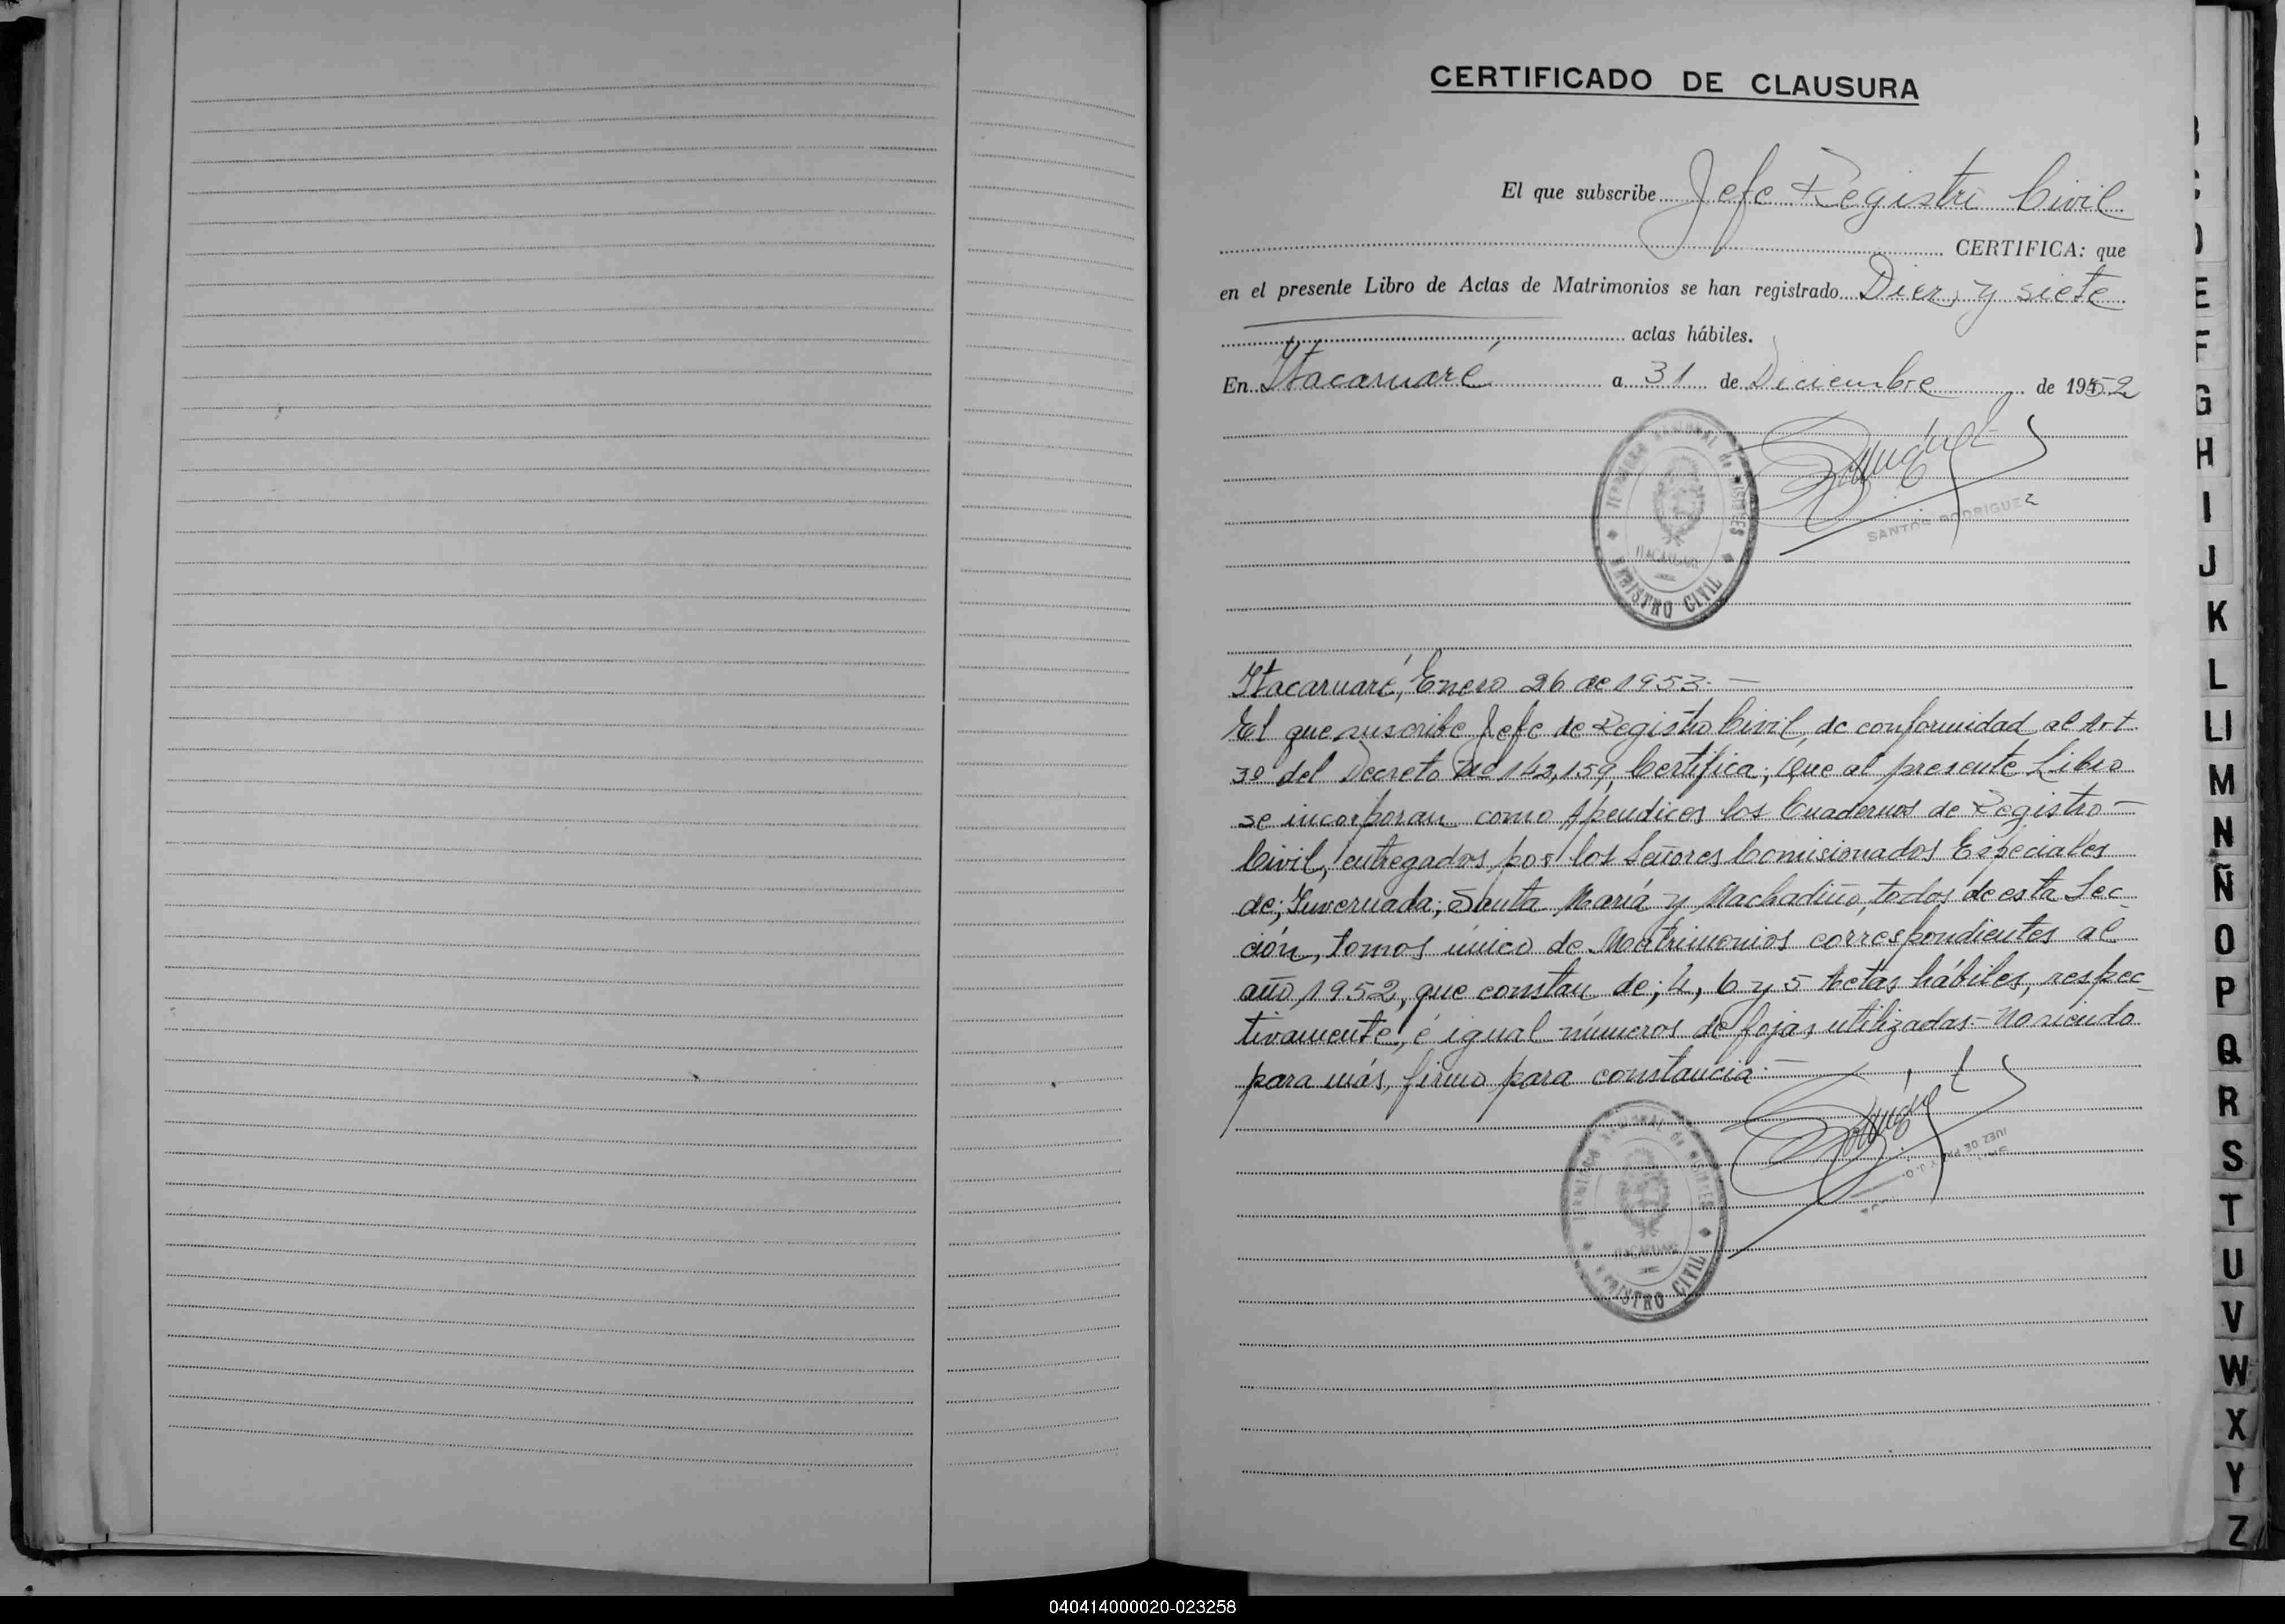 CERTIFICADO DE CLAUSURA
El que subscribe Jefe Registro Civil
CERTIFICA: que
en el presente Libro de Actas de Matrimonios se han registrado Diez y siete
actas hábiles.
En Itacaruaré a 31 de Diciembre de 1952
TERRITORIO NACIONAL de MISIONES
ITACARUARE
REGISTRO CIVIL
SANTOS RODRIGUEZ
Itacaruaré, Enero 26 de 1953.—
El que suscribe Jefe de Registro Civil, de conformidad al Art.
3º del Decreto Nº 142,159, Certifica; Que al presente Libro
se incorporan como Apendices los Cuadernos de Registro—
Civil, entregados por los Señores Comisionados Especiales
de; Invernada; Santa María y Machadiño, todos de esta Sec-
ción, tomos único de Matrimonios correspondientes al
año 1952, que constan de; 4, 6 y 5 Actas hábiles, respec-
tivamente, é igual números de fojas utilizadas.- No siendo
para más, firmo para constancia.—
TERRITORIO NACIONAL de MISIONES
ITACARUARE
REGISTRO CIVIL
JUEZ DE PAZ
E
F
G
H
I
J
K
L
Ll
M
N
Ñ
O
P
Q
R
S
T
U
V
W
X
Y
Z
040414000020-023258